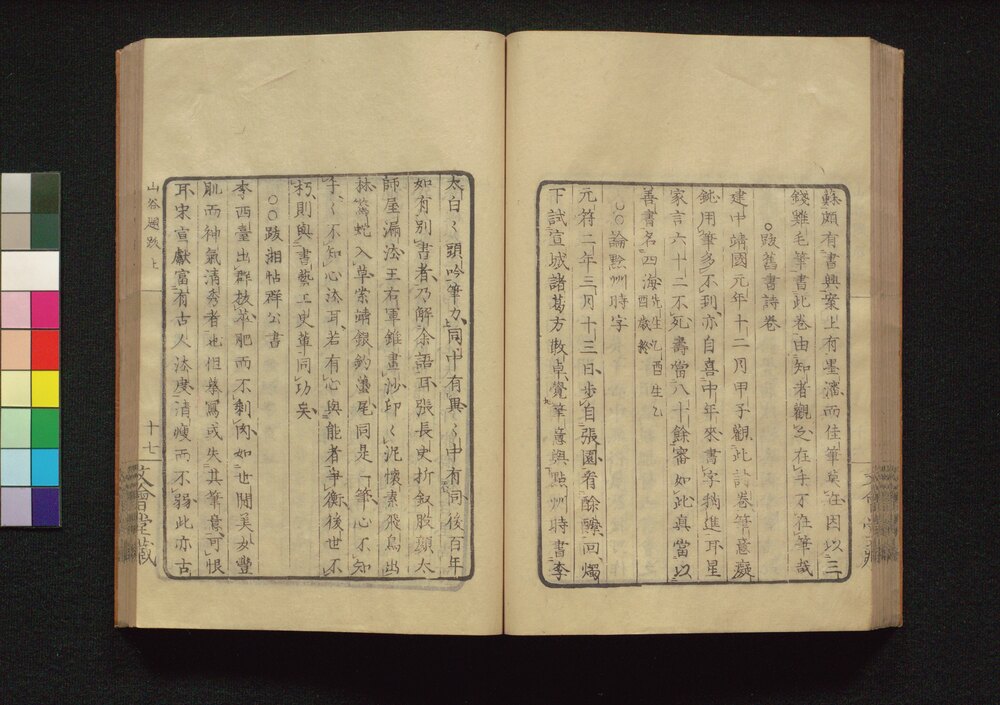 蘇頗有書興案上有墨瀋而佳筆莫在因以三
錢雞毛筆書此卷由知者觀之在手不在筆哉
○跋舊書詩卷
建中靖國元年十二月甲子觀此詩卷筆意癡
鈍用筆多不到亦自喜中年來書字稍進耳星
家言六十二不死壽當八十餘審如此真當以
善書名四海先生乙酉生乙酉歲終
○○論黔州時字
元符二年三月十三日步自張園看酴醾回燭
下試宣城諸葛方散卓覺筆意與黔州時書李
太白〻頭吟筆力同中有異〻中有同後百年
如有別書者乃解余語耳張長史折釵股顏太
師屋漏法王右軍錐畫沙印〻泥懷素飛鳥出
林驚蛇入草索靖銀鉤蠆尾同是一筆心不知
手〻不知心法耳若有心與能者爭衡後世不
朽則與書藝工史輩同功矣
○○跋湘帖群公書
李西臺出群拔萃肥而不剩肉如世間美女豐
肌而神氣清秀者也但摹寫或失其筆意可恨
耳宋宣獻富有古人法度清瘦而不弱此亦古
山谷題跋上
十七
文會堂藏